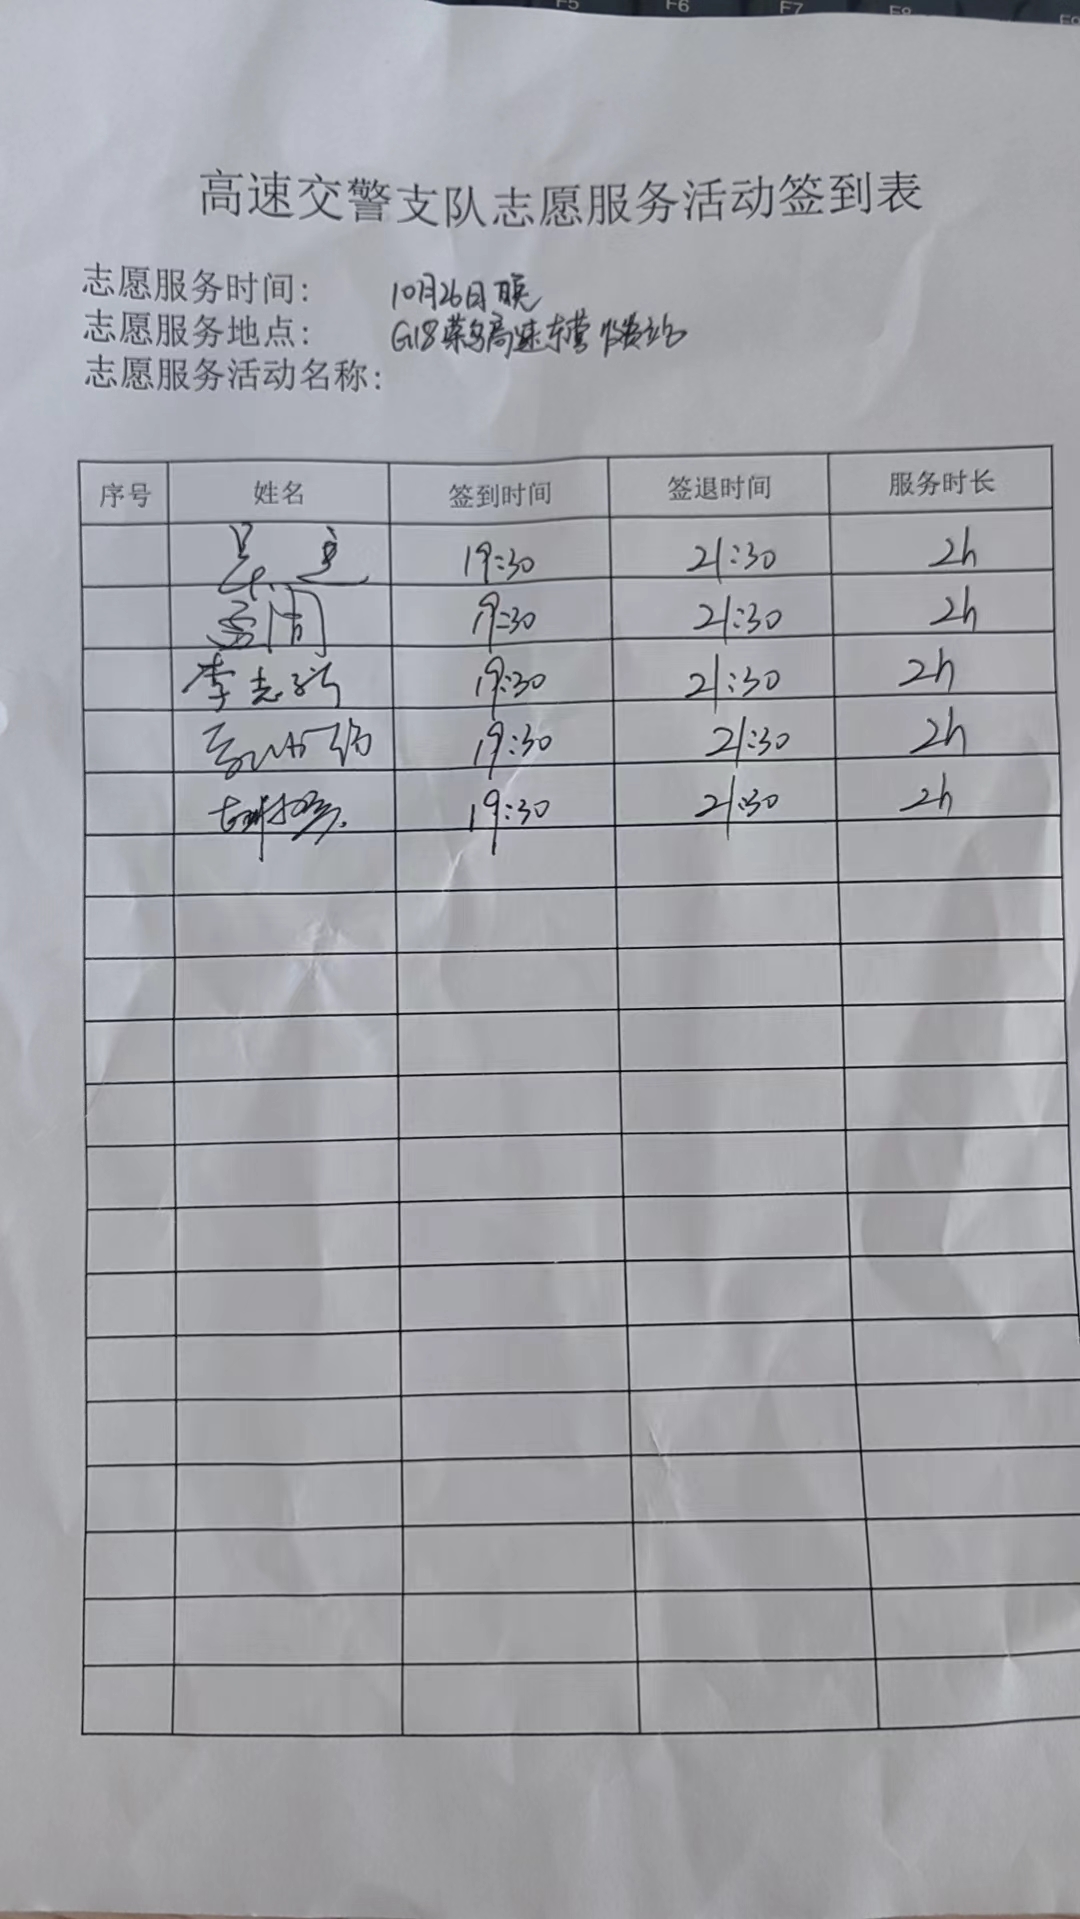 F5 F6 F7 F8 F9
高速交警支队志愿服务活动签到表
志愿服务时间： 10月26日晚
志愿服务地点： G18荣乌高速东营收费站
志愿服务活动名称：
序号 姓名 签到时间 签退时间 服务时长
19:30 21:30 2h
19:30 21:30 2h
李志 19:30 21:30 2h
19:30 21:30 2h
19:30 21:30 2h